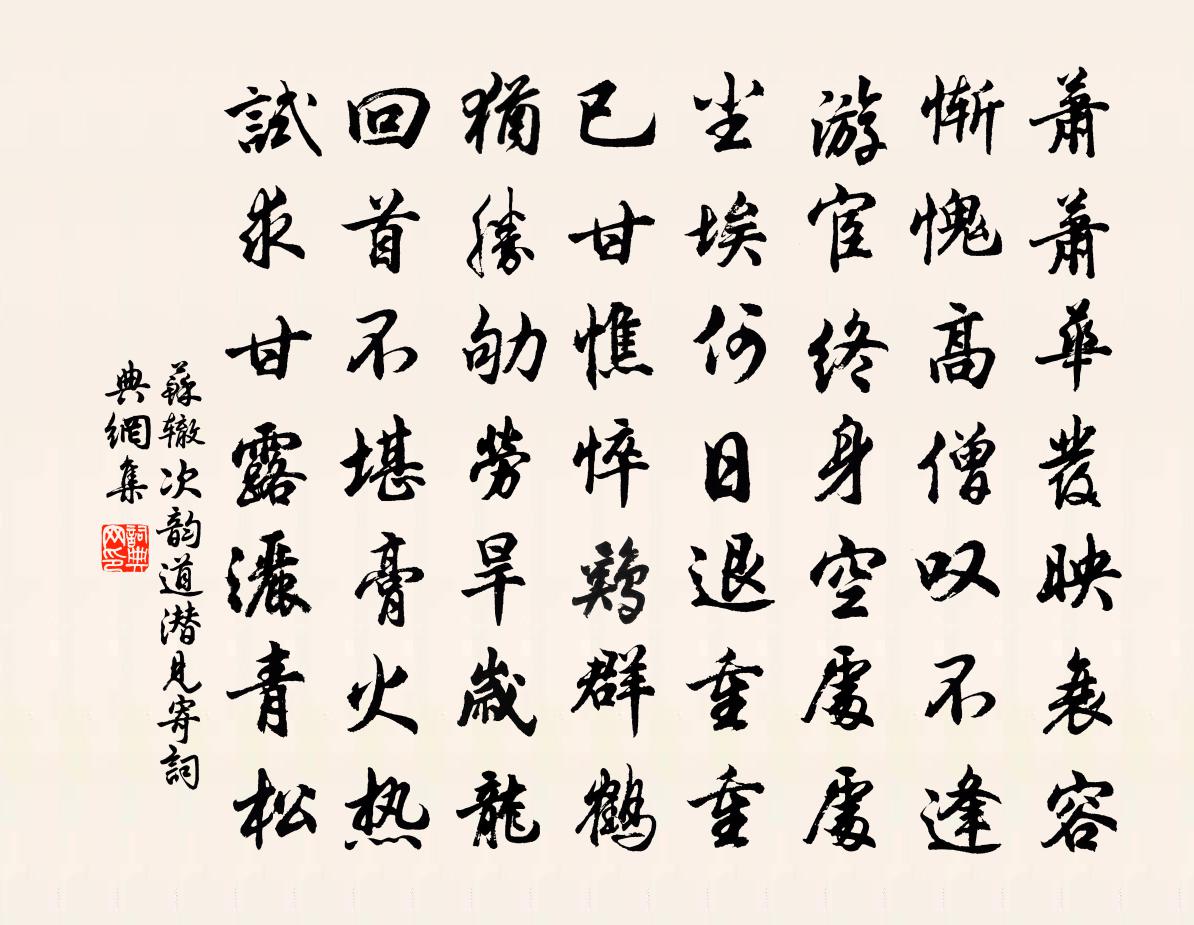 蕭蕭華發映衰容
慚愧高僧叹不逢
游宦終身空處處
尘埃何日退重重
已甘憔悴鷄群鶴
猶勝劬勞旱歲龍
回首不堪膏火热
試求甘露灑青松
蘇辙次韵道潜見寄詞
典網集
詞典网印